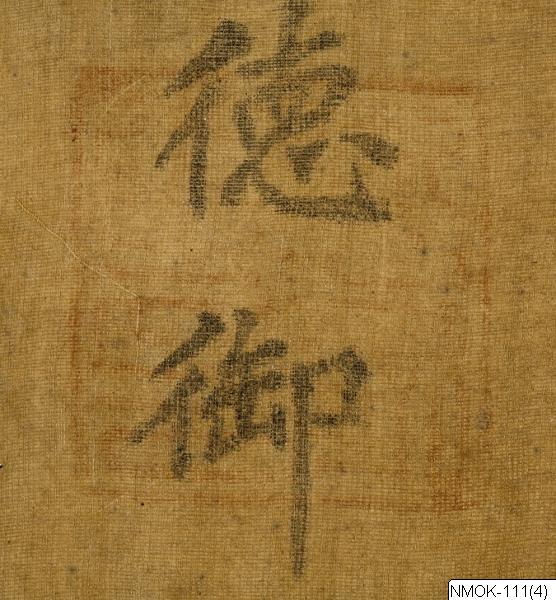 德御
NMOK-111(4)